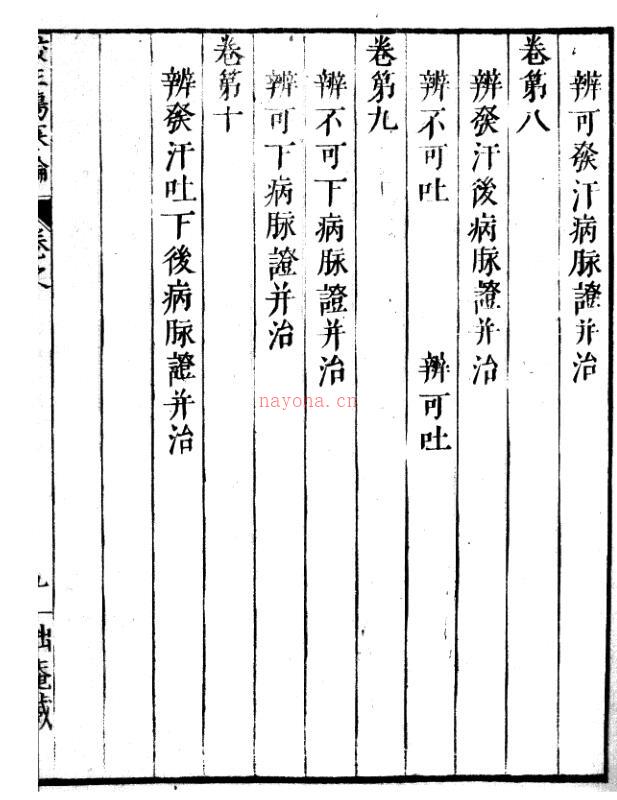 辨可發汗病脉證并治
卷第八
辨發汗後病脉證并治
辨不可吐 辨可吐
卷第九
辨不可下病脉證并治
辨可下病脉證并治
卷第十
辨發汗吐下後病脉證并治
nayona.cn